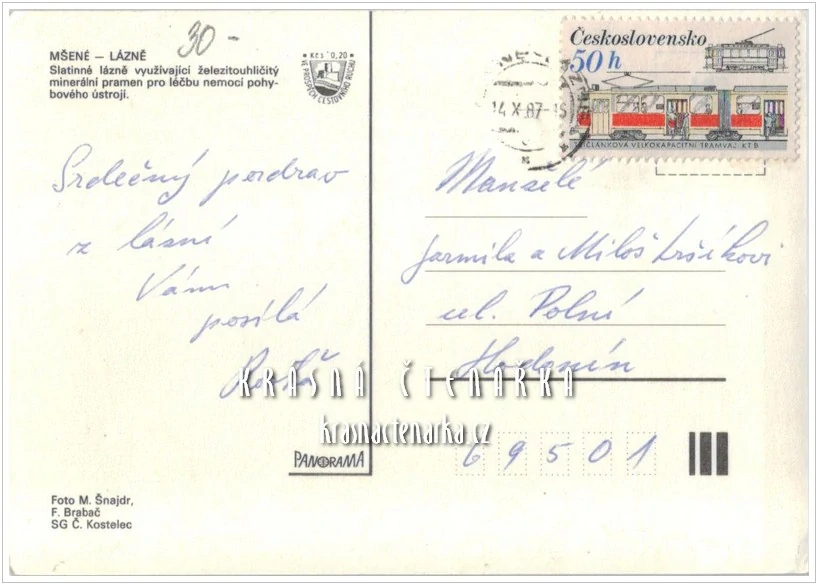 MŠENÉ – LÁZNĚ
Slatinné lázně využívající železitouhličitý
minerální pramen pro léčbu nemocí pohy-
bového ústrojí.
30-
Kčs 0,20
VE PROSPĚCH CESTOVNÍHO RUCHU
Československo
50 h
ČLÁNKOVÁ VELKOKAPACITNÍ TRAMVAJ KT 8
14.X.87-15
Srdečný pozdrav
z lázní
Vám
posílá
Manželé
Jarmila a Miloš
ul. Polní
Hodonín
69501
KRÁSNÁ ČTENÁRKA
krasnactenarka.cz
PANORAMA
Foto M. Šnajdr,
F. Brabač
SG Č. Kostelec